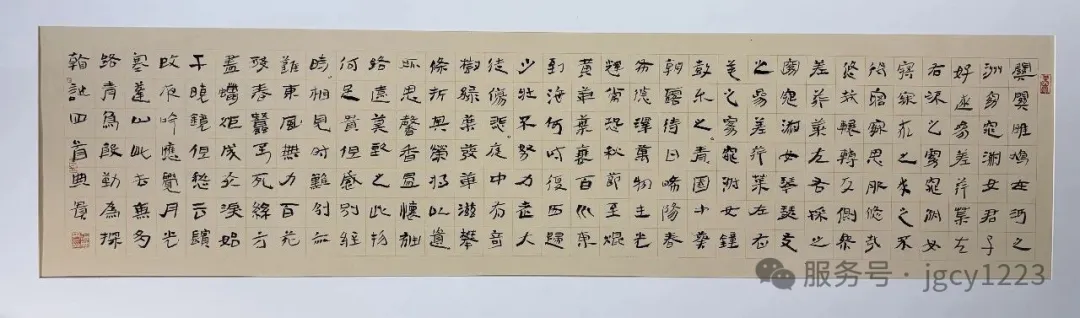 關關雎鳩在河之
洲窈窕淑女君子
好逑參差荇菜左
右流之窈窕淑女
寤寐求之求之不
得寤寐思服悠哉
悠哉輾轉反側參
差荇菜左右採之
窈窕淑女琴瑟友
之參差荇菜左右
芼之窈窕淑女鐘
鼓樂之青園中葵
朝露待日晞陽春
布德澤萬物生光
輝常恐秋節至焜
黃華葉衰百川東
到海何時復西歸
少壯不努力老大
徒傷悲庭中有奇
樹綠葉發華滋攀
條折其榮將以遺
所思馨香盈懷袖
路遠莫致之此物
何足貴但感別經
時相見時難別亦
難東風無力百花
殘春蠶到死絲方
盡蠟炬成灰淚始
干曉鏡但愁雲鬢
改夜吟應覺月光
寒蓬山此去無多
路青鳥殷勤為探
看詩四首
服务号·jgcy1223